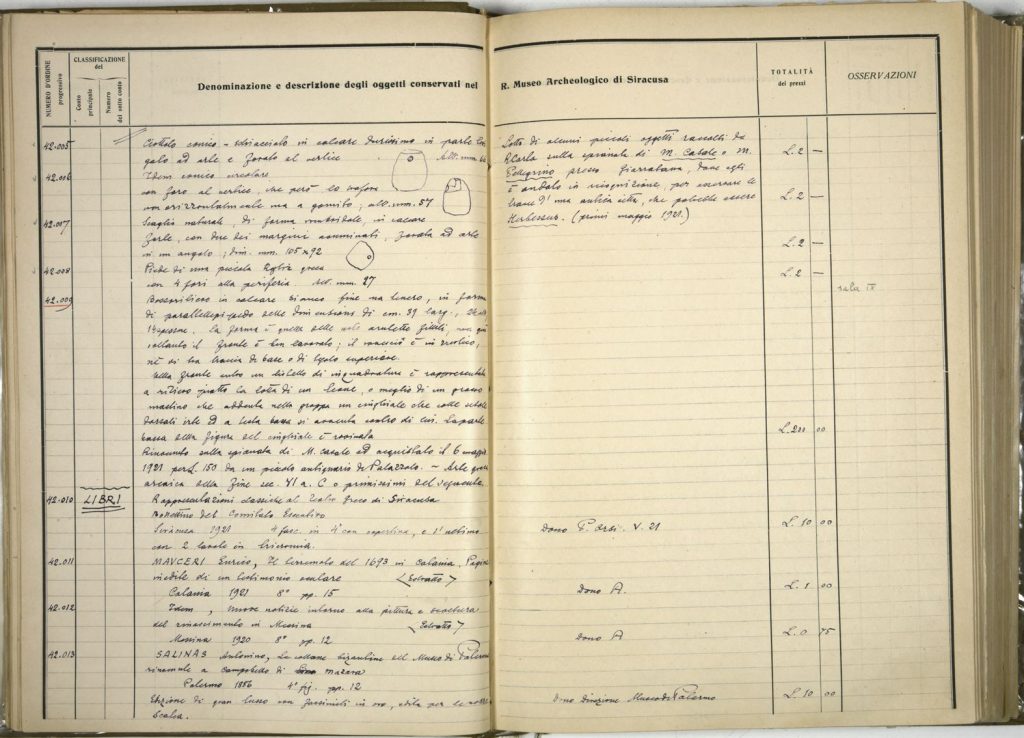 NUMERO D'ORDINE progressivo
CLASSIFICAZIONE del
Conto principale
Numero del sotto conto
Denominazione e descrizione degli oggetti conservati nel R. Museo Archeologico di Siracusa
TOTALITÀ dei prezzi
OSSERVAZIONI
42.005 Ciottolo conico-schiacciato in calcare durissimo in parte
ad arte e forato al vertice
L. 2 —
42.006 Idem conico circolare
con foro al vertice, che però lo trafora
non orizzontalmente ma a gomito; alt. mm. 87
L. 2 —
42.007 Scaglia naturale, di forma romboidale, in calcare
forte, con due dei margini forata ad arte
in un angolo; dim. mm. 105 x 92
L. 2 —
42.008 Piede di una piccola greca
con 4 fori alla periferia. mm. 27
L. 2 —
Lotto di alcuni piccoli oggetti raccolti da
R. Carta sulla spianata di M. Casale o M.
Pellegrino presso Giarratana, dove egli
è andato in ricognizione, per osservare le
tracce d'una antica città, che potrebbe essere
Herbessus. (primi maggio 1921.)
42.009 Bassorilievo in calcare bianco fine ma tenero, in forma
di parallelepipedo delle dimensioni di cm. 39 larg.,
sala IX
la forma è quella delle
soltanto il fronte è ben lavorato; il rovescio è in rustico,
nè vi ha traccia di base o di listello superiore.
Nella fronte entro un listello di inquadratura è rappresentata
a rilievo piatto la lotta di un leone, o meglio di un grosso
mastino che addenta nella groppa un cinghiale che colle setole
dorsali irte ed a testa bassa si avventa contro di lui. La parte
bassa della figura del cinghiale è rovinata
L. 200 00
Rinvenuto sulla spianata di M. Casale ed acquistato il 6 maggio
1921 per L. 150 da un piccolo antiquario di Palazzolo. — Arte greca
arcaica della fine sec. VI a. C. o primissimi del seguente.
42.010 LIBRI Rappresentazioni classiche al Teatro Greco di Siracusa
Bollettino del Comitato Esecutivo
Siracusa 1921 4 fasc. in 4° con copertina, e l'ultimo
con 2 tavole in tricromia.
Dono P. Orsi. V. 21
L. 10 00
42.011 MAUCERI Enrico, Il terremoto del 1693 in Catania. Pagine
inedite di un testimonio oculare <Estratto>
Catania 1921 8° pp. 15
Dono A.
L. 1 00
42.012 Idem, Nuove notizie intorno alla pittura e scultura
del rinascimento in Messina <Estratto>
Messina 1920 8° pp. 12
Dono A
L. 0 75
42.013 SALINAS Antonino, Le collane bizantine del Museo di Palermo
rinvenute a Campobello di Mazara
Palermo 1886 4° fig. pp. 12
Edizione di gran lusso con facsimili in oro, edita per le nozze
Scalia.
Dono Direzione Museo di Palermo
L. 10 00